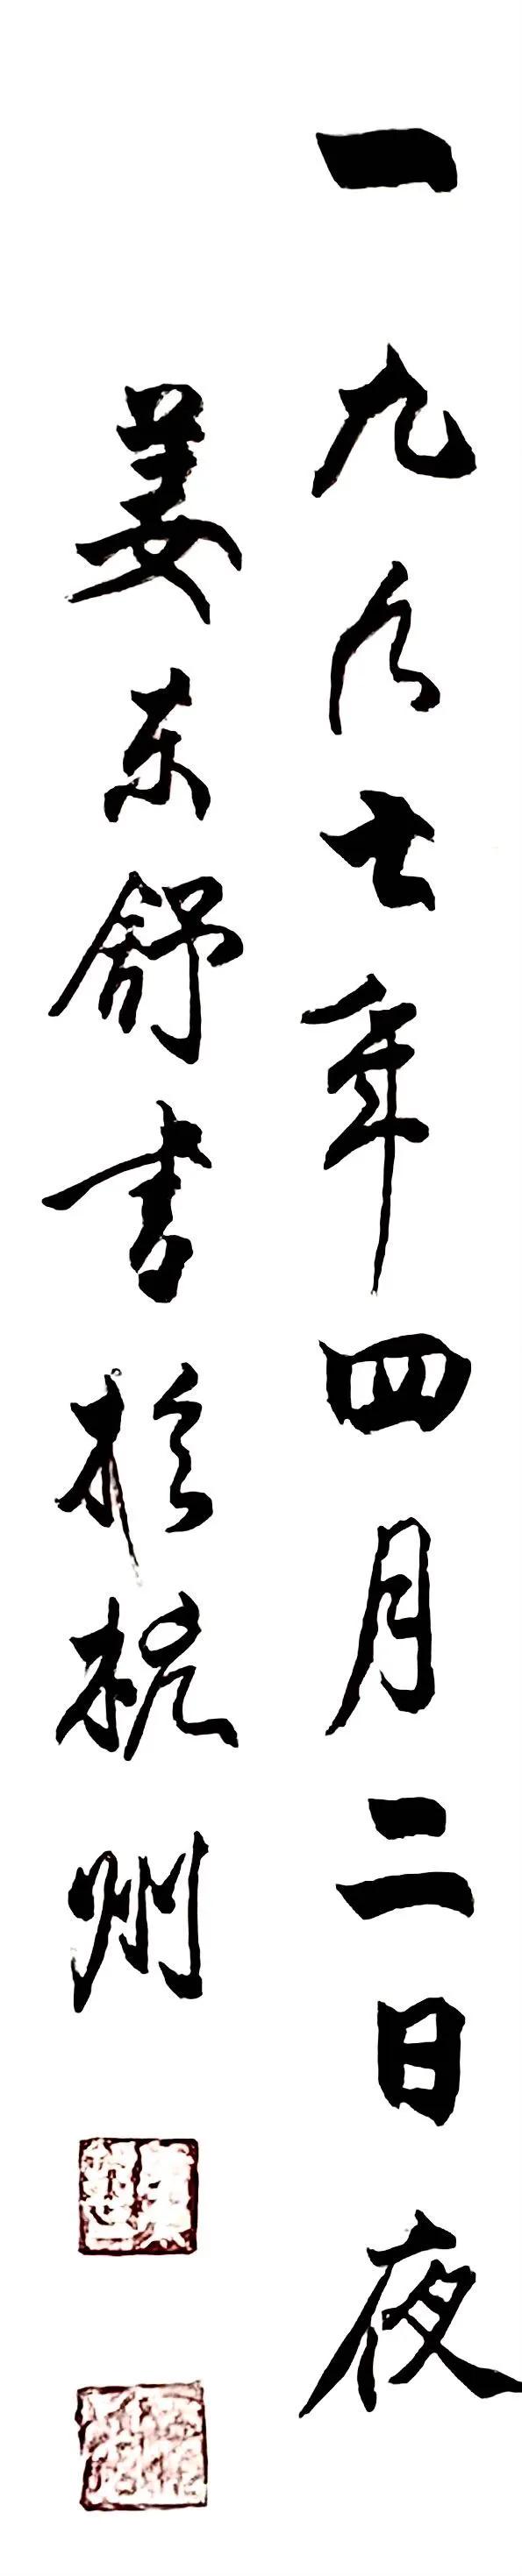 一九八七年四月二日夜
姜东舒书于杭州